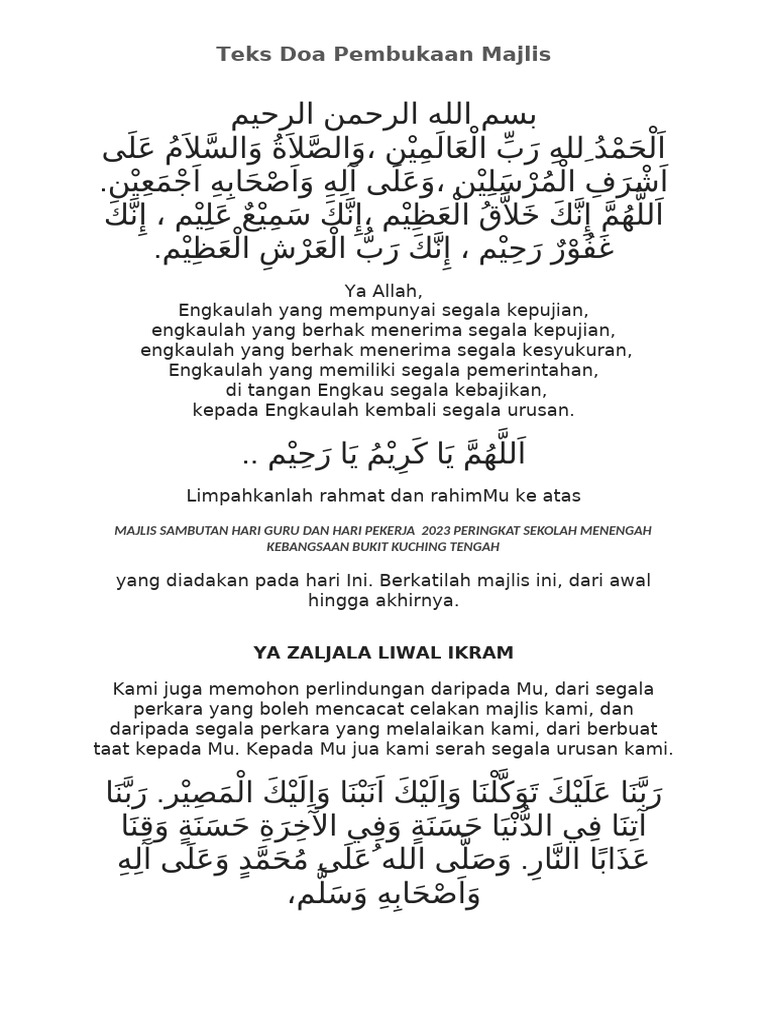 Teks Doa Pembukaan Majlis
بسم الله الرحمن الرحيم
اَلْحَمْدُ ِللهِ رَبِّ الْعَالَمِيْن ،وَالصَّلاَةُ وَالسَّلاَمُ عَلَى
اَشْرَفِ الْمُرْسَلِيْن ،وَعَلَى آلِهِ وَاَصْحَابِهِ اَجْمَعِيْن.
اَللَّهُمَّ إِنَّكَ خَلاَّقُ الْعَظِيْم ،إِنَّكَ سَمِيْعٌ عَلِيْم ، إِنَّكَ
غَفُوْرٌ رَحِيْم ، إِنَّكَ رَبُّ الْعَرْشِ الْعَظِيْم.
Ya Allah,
Engkaulah yang mempunyai segala kepujian,
engkaulah yang berhak menerima segala kepujian,
engkaulah yang berhak menerima segala kesyukuran,
Engkaulah yang memiliki segala pemerintahan,
di tangan Engkau segala kebajikan,
kepada Engkaulah kembali segala urusan.
اَللَّهُمَّ يَا كَرِيْمُ يَا رَحِيْم ..
Limpahkanlah rahmat dan rahimMu ke atas
MAJLIS SAMBUTAN HARI GURU DAN HARI PEKERJA 2023 PERINGKAT SEKOLAH MENENGAH
KEBANGSAAN BUKIT KUCHING TENGAH
yang diadakan pada hari Ini. Berkatilah majlis ini, dari awal
hingga akhirnya.
YA ZALJALA LIWAL IKRAM
Kami juga memohon perlindungan daripada Mu, dari segala
perkara yang boleh mencacat celakan majlis kami, dan
daripada segala perkara yang melalaikan kami, dari berbuat
taat kepada Mu. Kepada Mu jua kami serah segala urusan kami.
رَبَّنَا عَلَيْكَ تَوَكَّلْنَا وَاِلَيْكَ اَنَبْنَا وَاِلَيْكَ الْمَصِيْر. رَبَّنَا
آتِنَا فِي الدُّنْيَا حَسَنَةٍ وَفِي الآخِرَةِ حَسَنَةٍ وَقِنَا
عَذَابًا النَّارِ. وَصَلَّى الله ُعَلَى مُحَمَّدٍ وَعَلَى آلِهِ
وَاَصْحَابِهِ وَسَلَّم،